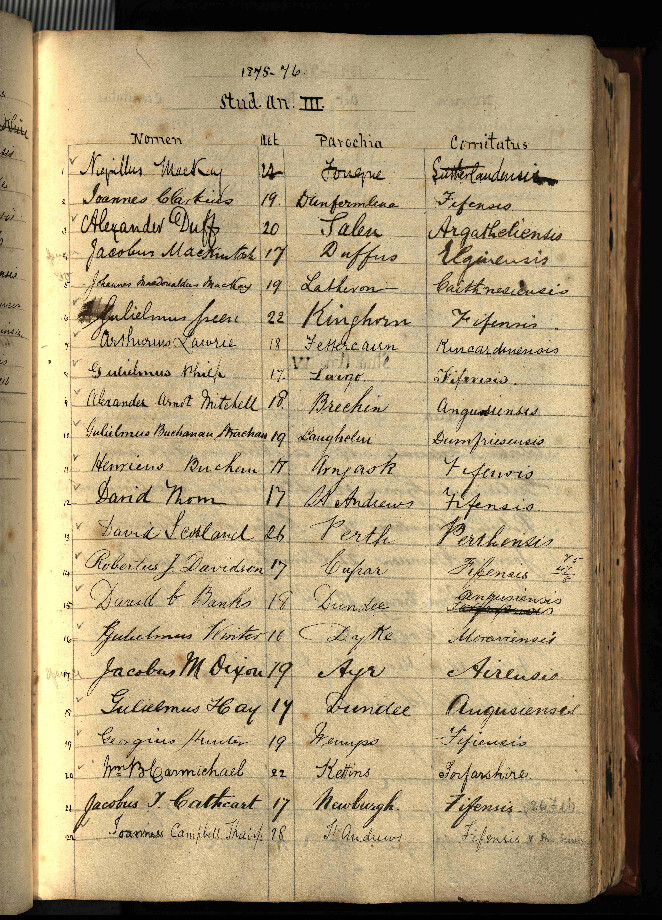 1875-76.
Stud. An. III.
Nomen Aet Parochia Comitatus
1 Neigillus MacKay 24 Tongue Sutherlandensis
2 Joannes Clarkius 19. Dunfermline Fifensis
3 Alexander Duff 20 Salen Argatheliensis
4 Jacobus Mackintosh 17 Duffus Elginensis
5 Johannes Macdonaldus MacKay 19 Latheron Caithnesiensis
6 Gulielmus Green 22 Kinghorn Fifensis
7 Arthurius Lawrie 18 Fettercairn Kincardinensis
8 Gulielmus Philp 17. Largo Fifensis.
9 Alexander Arnot Mitchell 18. Brechin Angusiensis
10 Gulielmus Buchanan Strachan 19 Langholm Dumfriesensis
11 Henricus Buchan 17 Arngask Fifensis
12 David Thom 17 St Andrews Fifensis
13 David Scotland 26 Perth Perthensis
14 Robertus J. Davidson 17 Cupar Fifensis
15 David C Banks 18 Dundee Angusiensis
16 Gulielmus Winter 16 Dyke Moraviensis
17 Jacobus M Dixon 19 Ayr Airensis
18 Gulielmus Hay 17 Dundee Angusiensis
19 Georgius Hunter 19 Wemyss Fifiensis
20 Wm B. Carmichael 22 Kettins Forfarshire.
21 Jacobus T. Cathcart 17 Newburgh. Fifensis
22 Joannes Campbell Shairp 18 St Andrews Fifensis